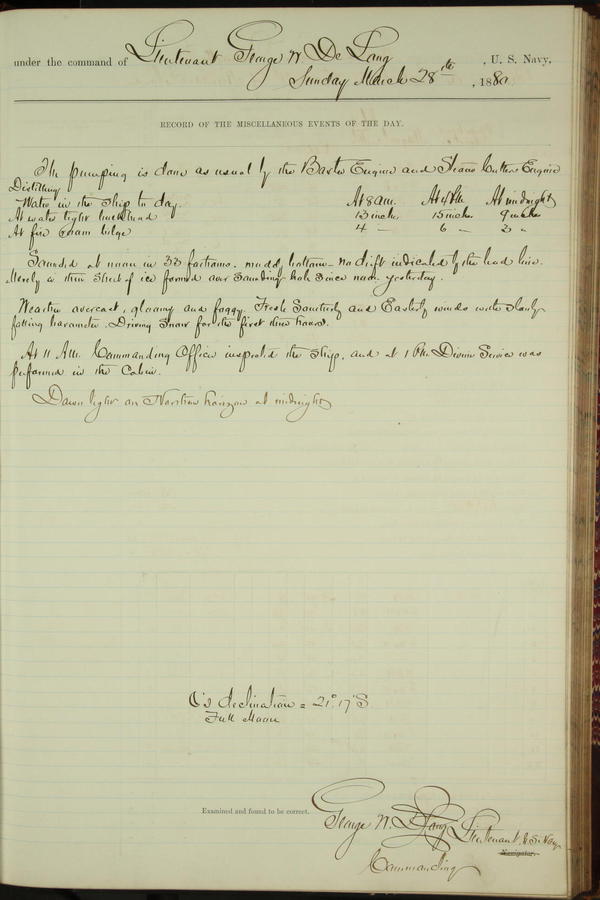 under the command of Lieutenant George W De Long, U. S. Navy.
Sunday March 28th, 1880
RECORD OF THE MISCELLANEOUS EVENTS OF THE DAY.
The pumping is done as usual by the Baxter Engine and Steam Cutters Engine
Distilling
Water in the Ship to day. At 8 a.m. At 4 P.M. At midnight
At water tight bulkhead 13 inches 15 inches 9 inches
At fire room bilge 4 " 6 " 2 "
Sounded at noon in 33 fathoms. muddy bottom - no drift indicated by the lead line.
Merely a thin Sheet of ice formed over Sounding hole Since noon yesterday.
Weather overcast, gloomy and foggy. Fresh Southerly and Easterly winds with slowly
falling barometer. Driving Snow for the first hours.
At 11 A.M. Commanding Officer inspected the Ship, and at 1 P.M. Divine Service was
performed in the Cabin.
Dawn light on Northern horizon at midnight
☾'s declination = 21° 17' S
Full Moon
Examined and found to be correct.
George W. De Long Lieutenant, U.S. Navy
Navigator.
Commanding